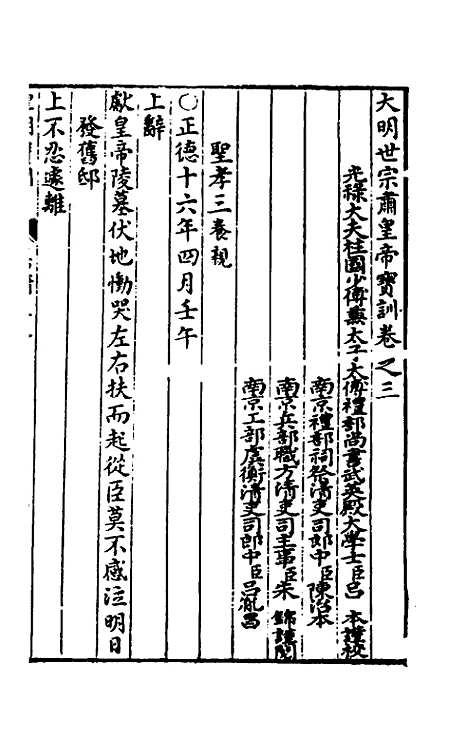 大明世宗肅皇帝寶訓卷之三
光祿大夫柱國少傅兼太子太傅禮部尚書武英殿大學士臣呂 本謹校
南京禮部祠祭清吏司郎中臣陳治本
南京兵部職方清吏司主事臣朱 錦謹閱
南京工部虞衡清吏司郎中臣呂胤昌
聖孝三養親
○正德十六年四月壬午
上辭
獻皇帝陵墓伏地慟哭左右扶而起從臣莫不感泣明日
發舊邸
上不忍遽離